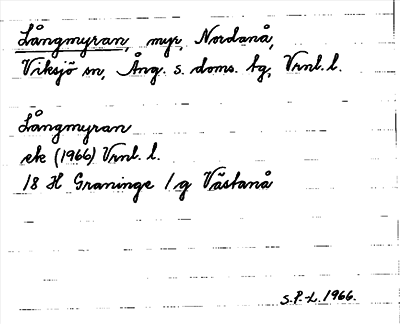 Långmyran, myr, Nordanå,
Viksjö sn, Ång. s. doms. tg, Vrnl. l.
Långmyran
ek (1966) Vrnl. l.
18 H Graninge 1 g Västanå
S.P-L. 1966.